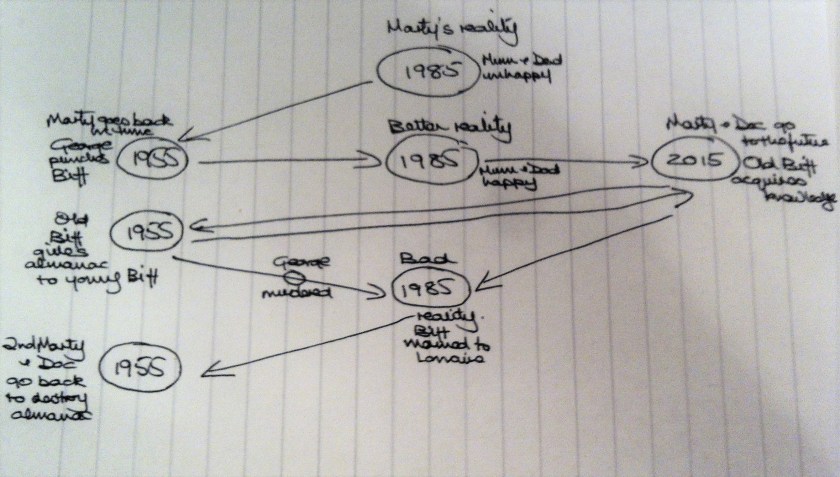 Marty's reality
1985
Mum + Dad
unhappy
Marty goes back
in time
George
punches
Biff
1955
Better reality
1985
Mum + Dad
happy
Marty + Doc go
to the future
2015
Old Biff
acquires
knowledge
Old
Biff
gives
almanac
to young Biff
1955
George
murdered
Bad
1985
reality.
Biff
married to
Lorraine
2nd Marty
+ Doc
go back
to destroy
almanac
1955